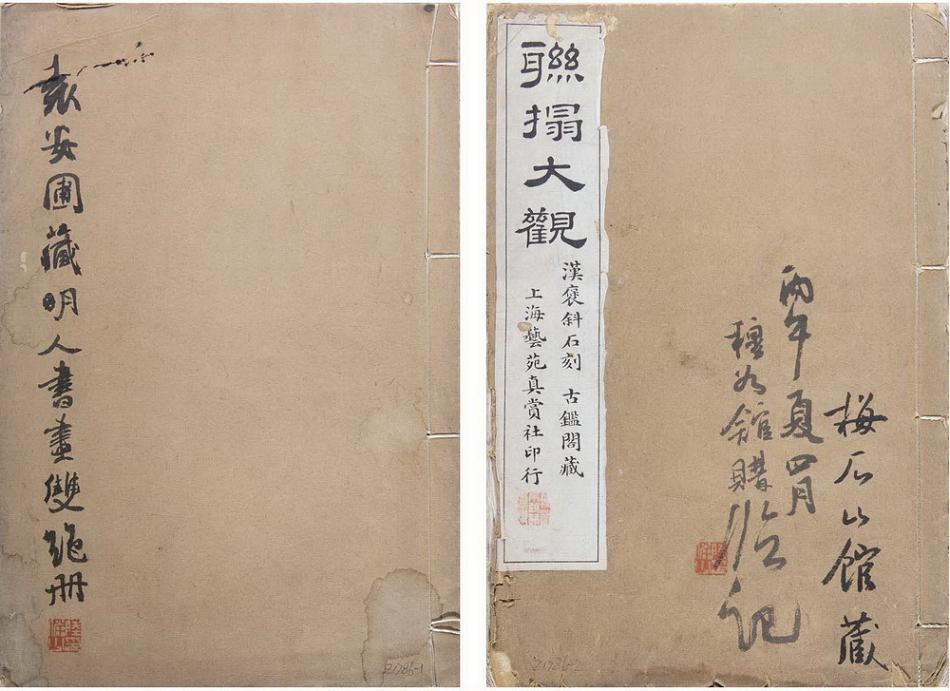 袁安圃藏明人書畫雙絕冊
Z1786-1
聯搨大觀
漢褒斜石刻 古鑑閣藏
上海藝苑真賞社印行
梅石山館藏
丙午夏四月
館購
記